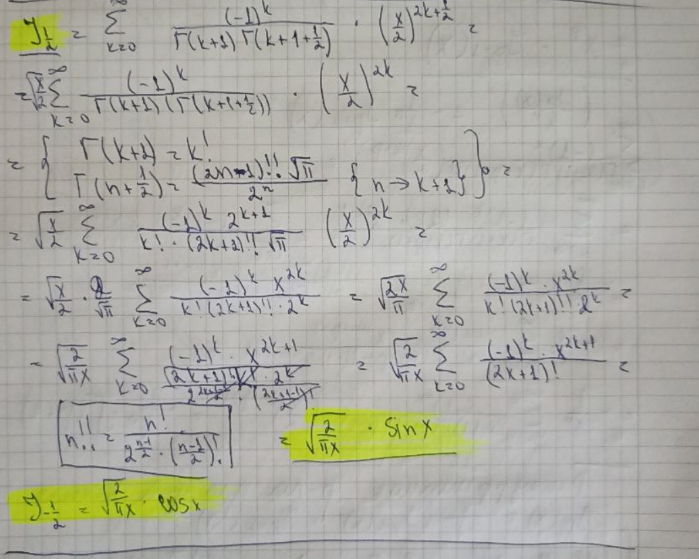 J_{1/2} = ∑_{k=0}^{∞} (-1)^k / (Γ(k+1) Γ(k+1+1/2)) · (x/2)^{2k+1/2} =
= √(x/2) ∑_{k=0}^{∞} (-1)^k / (Γ(k+1) (Γ(k+1+1/2))) · (x/2)^{2k} =
= { Γ(k+1) = k!
Γ(n+1/2) = (2n-1)!! √π / 2^n {n → k+1} } =
= √(x/2) ∑_{k=0}^{∞} (-1)^k 2^{k+1} / (k! · (2k+1)!! √π) (x/2)^{2k} =
= √(x/2) · 2/√π ∑_{k=0}^{∞} (-1)^k · x^{2k} / (k! (2k+1)!! · 2^k) = √(2x/π) ∑_{k=0}^{∞} (-1)^k · x^{2k} / (k! (2k+1)!! 2^k) =
= √(2/(πx)) ∑_{k=0}^{∞} (-1)^k · x^{2k+1} / = √(2/(πx)) ∑_{k=0}^{∞} (-1)^k · x^{2k+1} / (2k+1)! =
n!! = n! / (2^{(n-1)/2} · ((n-1)/2)!) = √(2/(πx)) · sin x
J_{-1/2} = √(2/(πx)) · cos x